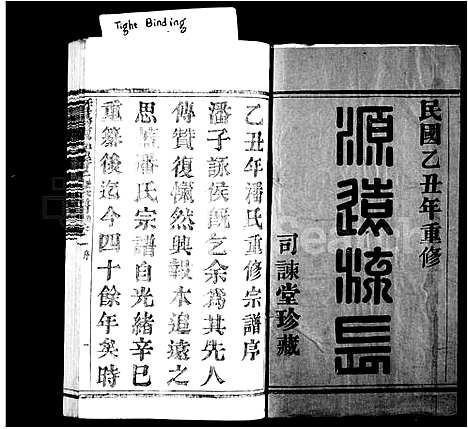 Tight Binding
民國乙丑年重修
源遠流長
司諫堂珍藏
乙丑年潘氏重修宗譜序
潘子詠侯既乞余為其先人
傳贊復慨然興報本追遠之
思 潘氏宗譜自光緒辛巳
重纂後迄今四十餘年矣時